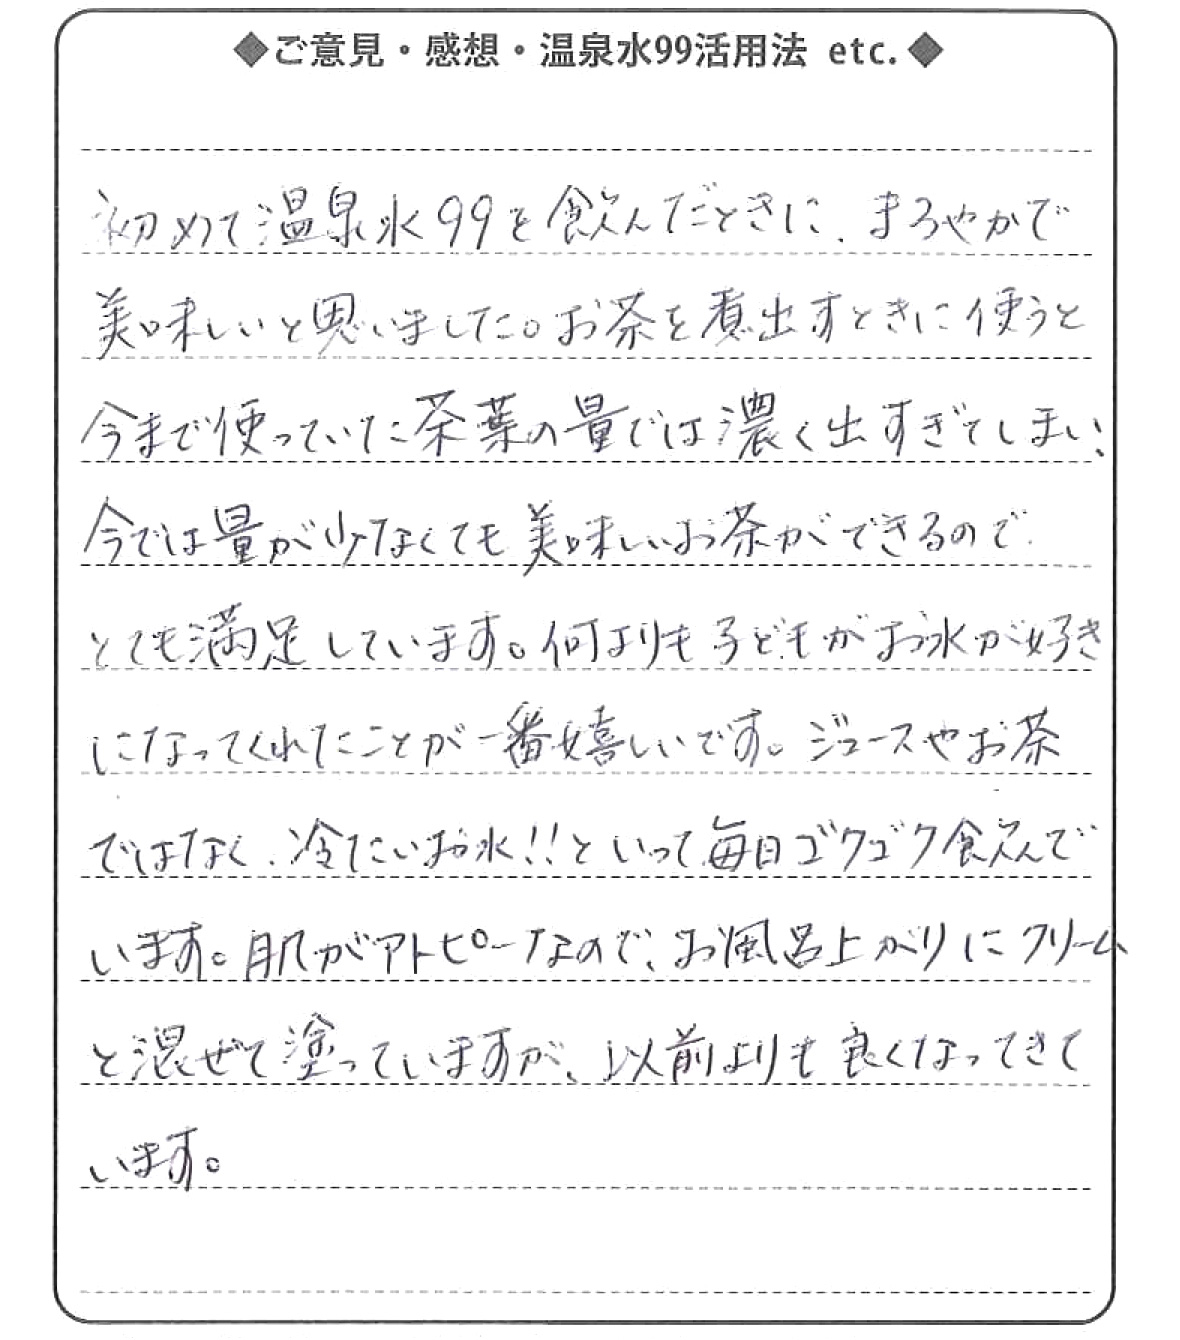 ◆ご意見・感想・温泉水99活用法 etc.◆
初めて温泉水99を飲んだときに、まろやかで
美味しいと思いました。お茶を煮出すときに使うと
今まで使っていた茶葉の量では濃く出すぎてしまい、
今では量が少なくても美味しいお茶ができるので
とても満足しています。何よりも子どもがお水が好き
になってくれたことが一番嬉しいです。ジュースやお茶
ではなく、冷たいお水!!といって毎日ゴクゴク飲んで
います。肌がアトピーなので、お風呂上がりにクリーム
と混ぜて塗っていますが、以前よりも良くなってきて
います。